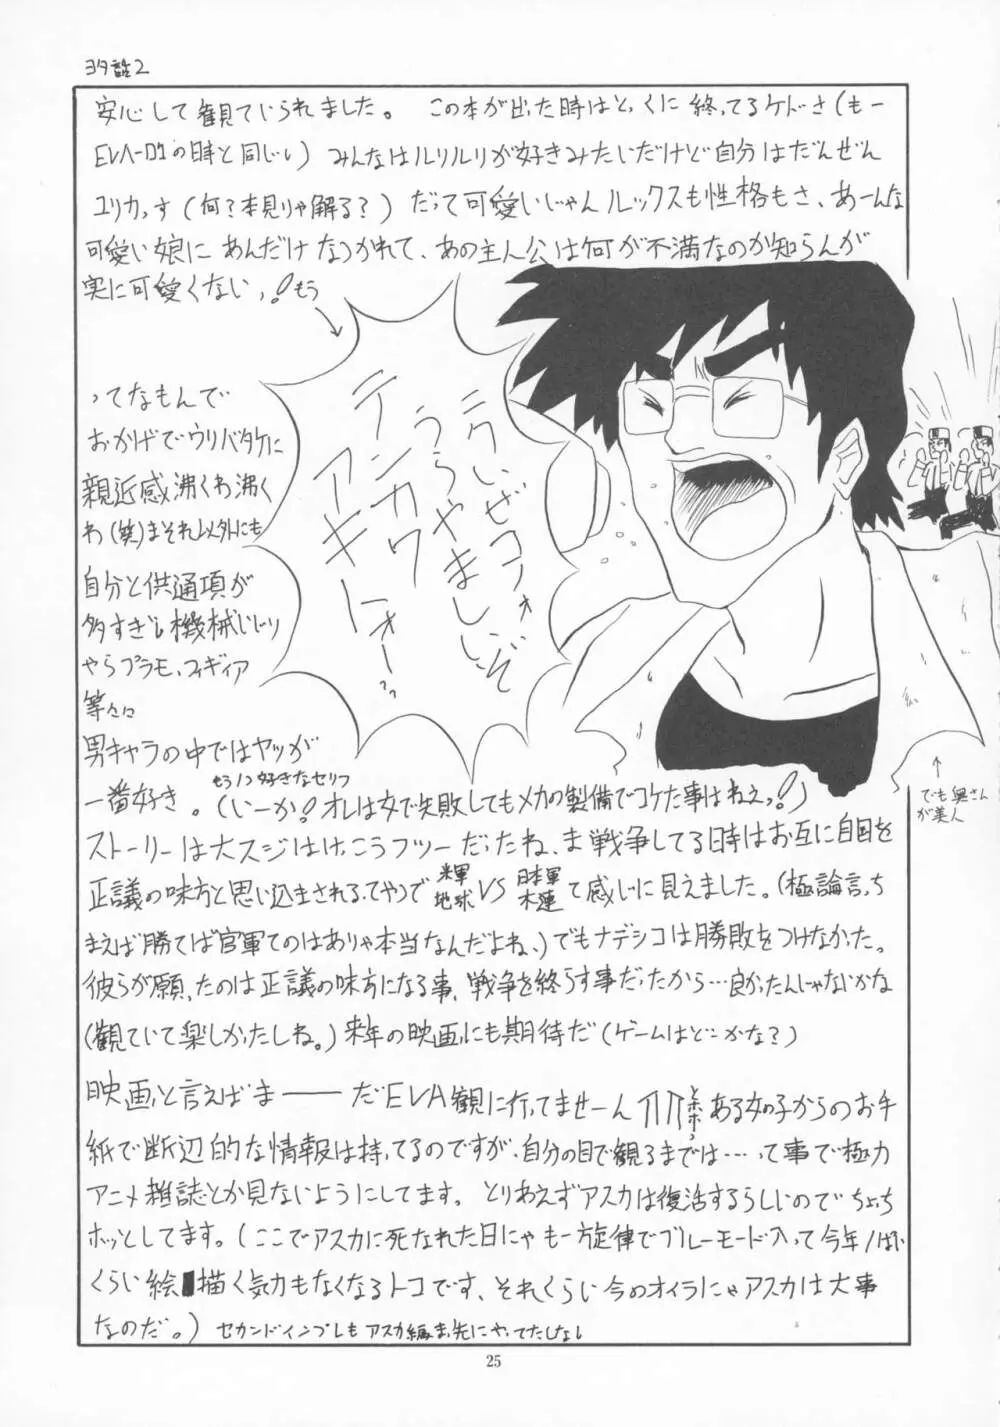 ヨタ話2
安心して観てじられました。 この本が出た時はとっくに終ってるケドさ(もー
EVA-01の日時と同じい)みんなはルリルリが好きみたいだけど自分はだんぜん
ユリカっす(何?本見りゃ解る?)だって可愛いじゃんルックスも性格もさ、あーんな
可愛い娘にあんだけなつかれて、あの主人公は何が不満なのか知らんが
実に可愛くないっ!もう
→
ニクいぜコンチクショォ
うらやましいぞ
テンカワ
アキトォー
ってなもんで
おかげでウリバタケに
親近感沸くわ沸く
わ(笑)まそれ以外にも
自分と供通項が
多すぎる機械いじり
やらプラモ、フィギィア
等々に
男キャラの中ではヤツが
一番好き。(いーか!オレは女で失敗してもメカの製備でコケた事はねえっ!)
もう1つ好きなセリフ
↑
でも奥さん
が美人
ストーリーは大スジはけっこうフツーだったね、ま戦争してる時はお互に自国を
正議の味方と思い込まされるってやつで 米軍 地球 VS 日本軍 木連 て感じに見えました。(極論言っち
まえば勝てば官軍てのはありゃ本当なんだよね、)でもナデシコは勝敗をつけなかった。
彼らが願ったのは正議の味方になる事、戦争を終らす事だったから…良かったんじゃないかな
(観ていて楽しかったしね。)来年の映画にも期待だ(ゲームはどこかな?)
映画と言えばま――だEVA観に行ってませーん トホホっ ある女の子からのお手
紙で断辺的な情報は持ってるのですが、自分の目で観るまでは…って事で極力
アニメ雑誌とか見ないようにしてます。とりあえずアスカは復活するらしいのでちょっち
ホッとしてます。(ここでアスカに死なれた日にゃもー旋律でブルーモード入って今年1ぱい
くらい絵描く気力もなくなるトコです、それくらい今のオイラにゃアスカは大事
なのだ。)セカンドインプレもアスカ編ま先にやってたしなし
25